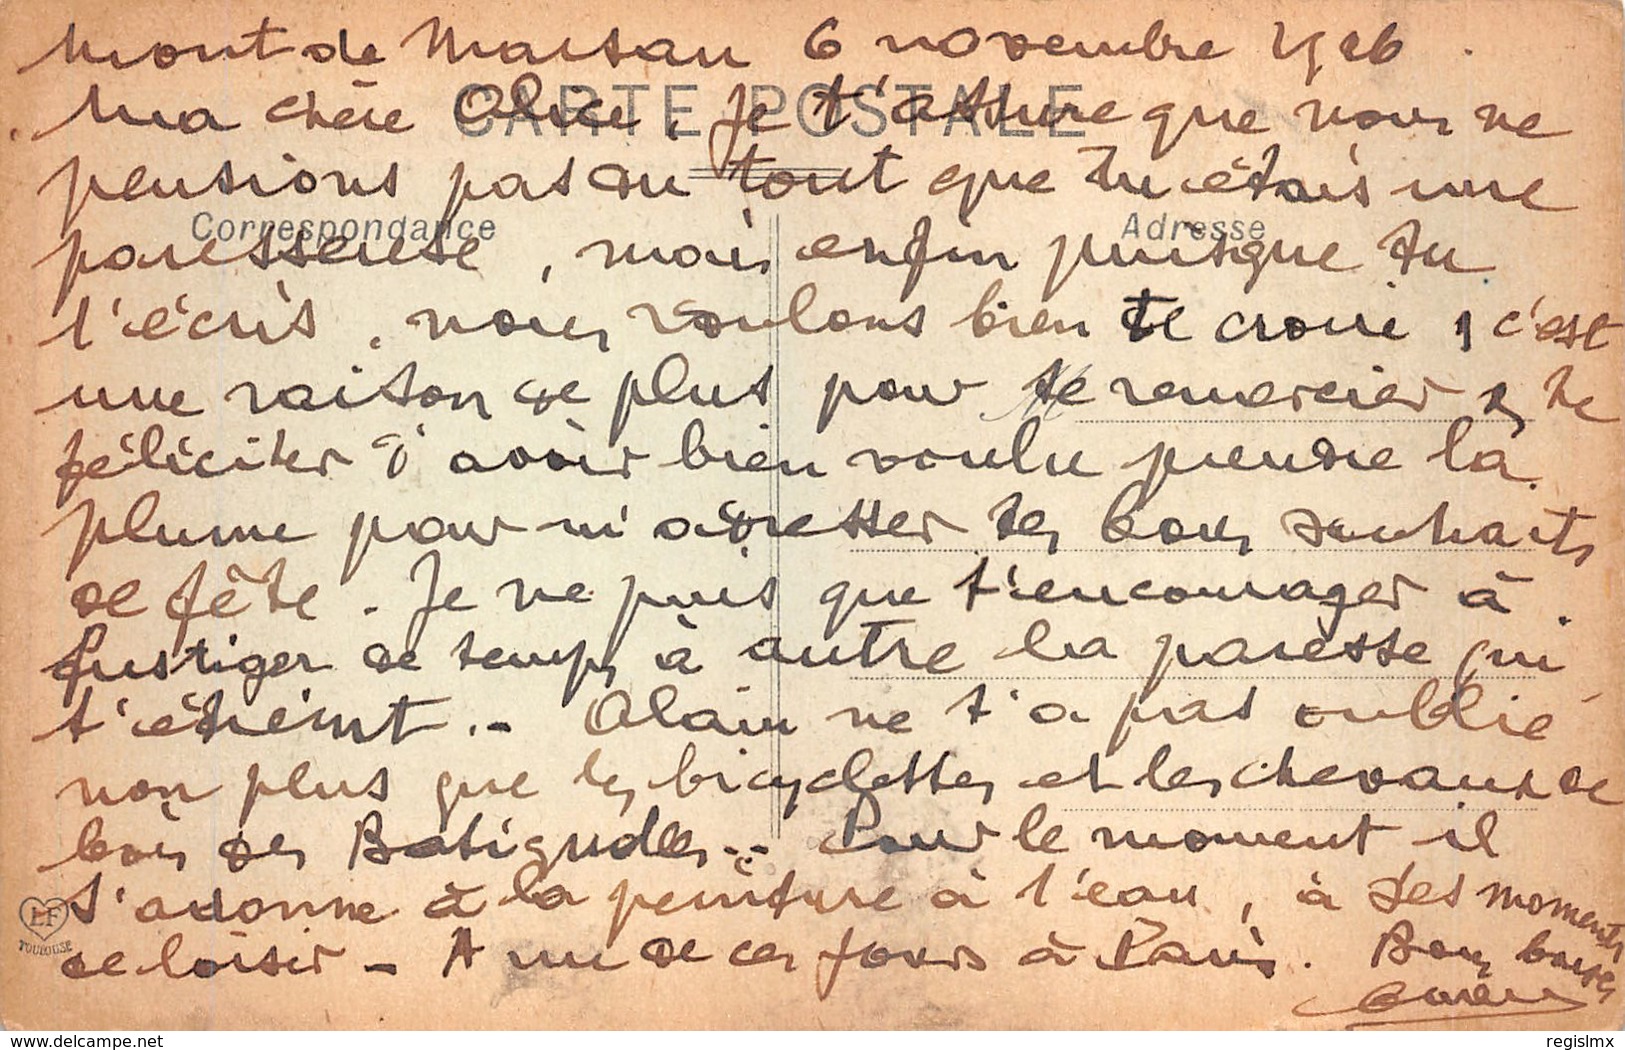 Mont de Marsan 6 novembre 1926.
CARTE POSTALE
Ma chère Alice, Je t'assure que nous ne
pensions pas du tout que tu étais une
Correspondance
Adresse
paresseuse, mais enfin puisque tu
l'écris, nous voulons bien te croire, c'est
une raison de plus pour te remercier & te
féliciter d'avoir bien voulu prendre la
plume pour m'adresser tes bons souhaits
de fête. Je ne puis que t'encourager à
fustiger de temps à autre la paresse qui
t'étreint.- Alain ne t'a pas oublié
non plus que les bicyclettes et les chevaux de
bois des Batignolles.- Pour le moment il
s'adonne à la peinture à l'eau, à ses moments
de loisir - A un de ces jours à Paris. Bons baisers
LF
TOULOUSE
www.delcampe.net
regislmx